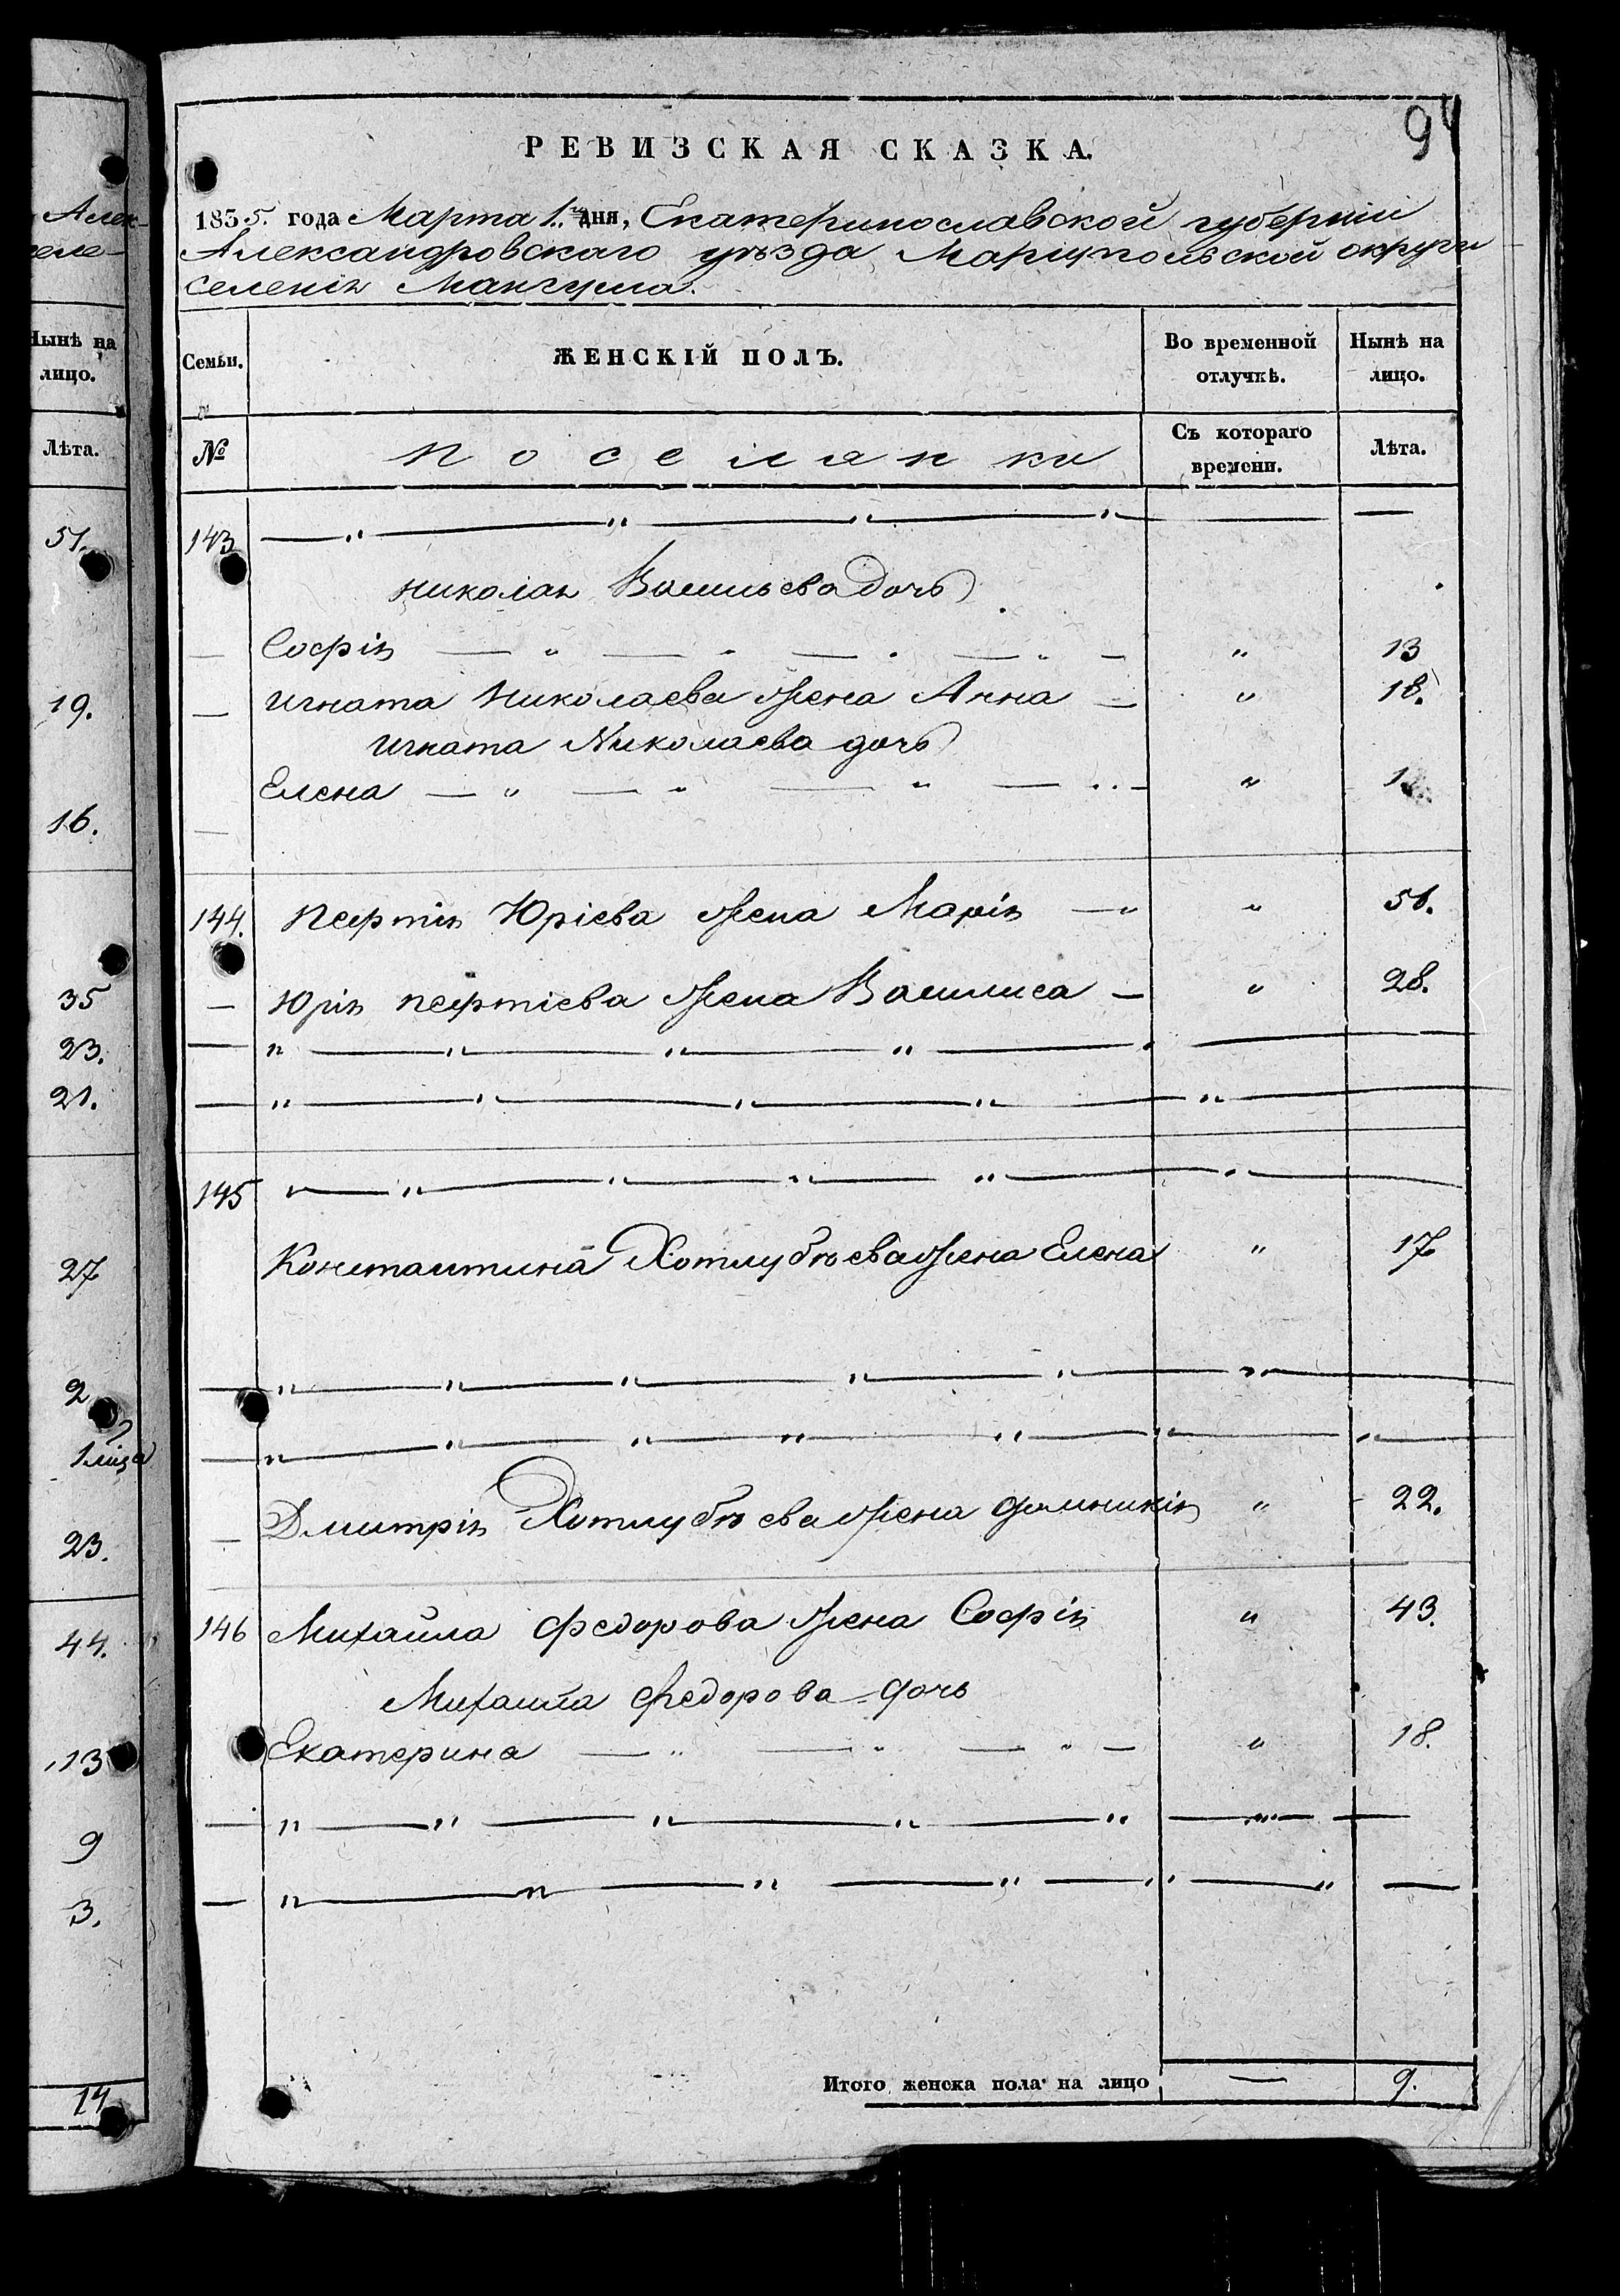 94
РЕВИЗСКАЯ СКАЗКА.
1835. года Марта 1. дня, Екатеринославской губерніи
Александровскаго уѣзда Маріупольской округи
селенія Мангуша.
Семьи. ЖЕНСКІЙ ПОЛЪ. Во временной отлучкѣ. Нынѣ на лицо.
№ Поселянки Съ котораго времени. Лѣта.
143 — „ — „ — „ — „ — —
Николая Васильева дочь
— Софія — „ — „ — „ — „ — „ 13
— Игната Николаева жена Анна — „ 18.
Игната Николаева дочь
Елена — „ — „ — „ — „ — „ 1
—
144. Пефтія Юріева жена Марія — „ „ 51.
— Юрія Пефтіева жена Василиса — „ 28.
— „ — „ — „ — „ —
— „ — „ — „ — „ — „ —
145 „ — „ — „ — „ — „ — „ —
Константина Хотлубѣева жена Елена „ 17
— „ — „ — „ — „ — „ — „ —
— „ — „ — „ — „ — „ — „ — „
— Дмитрія Хотлубѣева жена Домникія „ 22.
146 Михайла Федорова жена Софія „ 43.
Михайла Федорова дочь
Екатерина — „ — „ — „ — „ 18.
— „ — „ — „ — „ — „ — „ —
— „ — „ — „ — „ — „ — „ —
Итого женска пола на лицо — 9.
Алек-
селе-
Нынѣ на
лицо.
Лѣта.
51.
19.
16.
35
23.
21.
27
2
23.
44.
13
9
3.
14